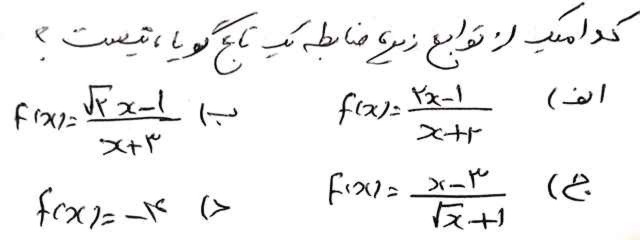 کدامیک از توابع زیر، ضابطه یک تابع گویا، نیست؟
الف) f(x)=\frac{۲x-1}{x+۲} ب) f(x)=\frac{\sqrt{۲}x-1}{x+۳}
ج) f(x)=\frac{x-۳}{\sqrt{x}+1} د) f(x)=-۴